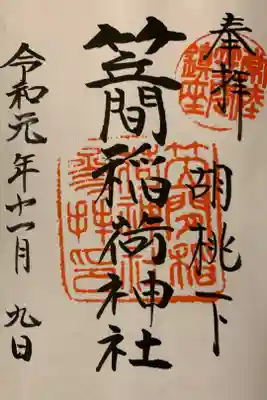 奉拝
胡桃下
笠間稲荷神社
令和元年十一月九日